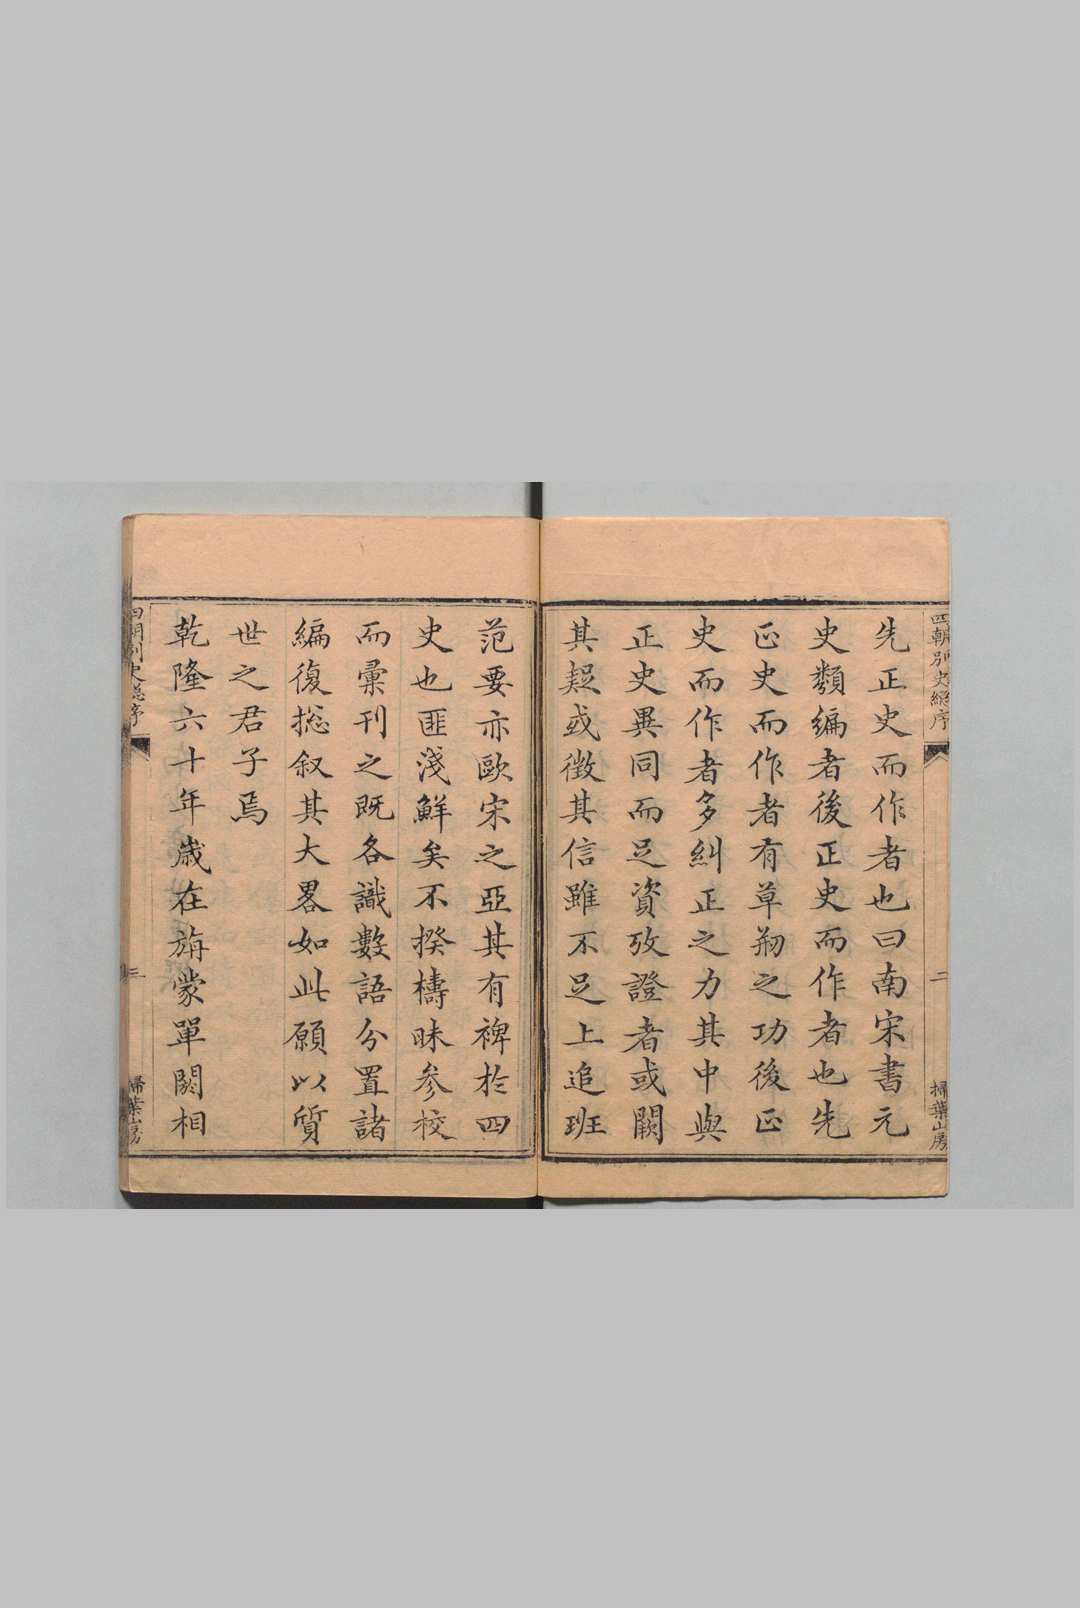 四朝別史總序
二
掃葉山房
先正史而作者也曰南宋書元
史類編者後正史而作者也先
正史而作者有草剏之功後正
史而作者多糾正之力其中與
正史異同而足資攷證者或闕
其疑或徵其信雖不足上追班
范要亦歐宋之亞其有裨於四
史也匪淺鮮矣不揆檮昧參校
而彙刊之既各識數語分置諸
編復揔叙其大畧如此願以質
世之君子焉
乾隆六十年歲在旃蒙單閼相
四朝別史總序
三
掃葉山房